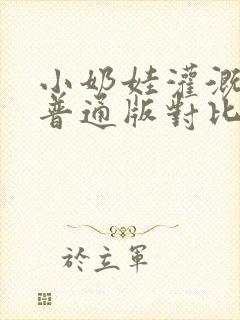 小奶娃灌溉
普通版對比
於立軍